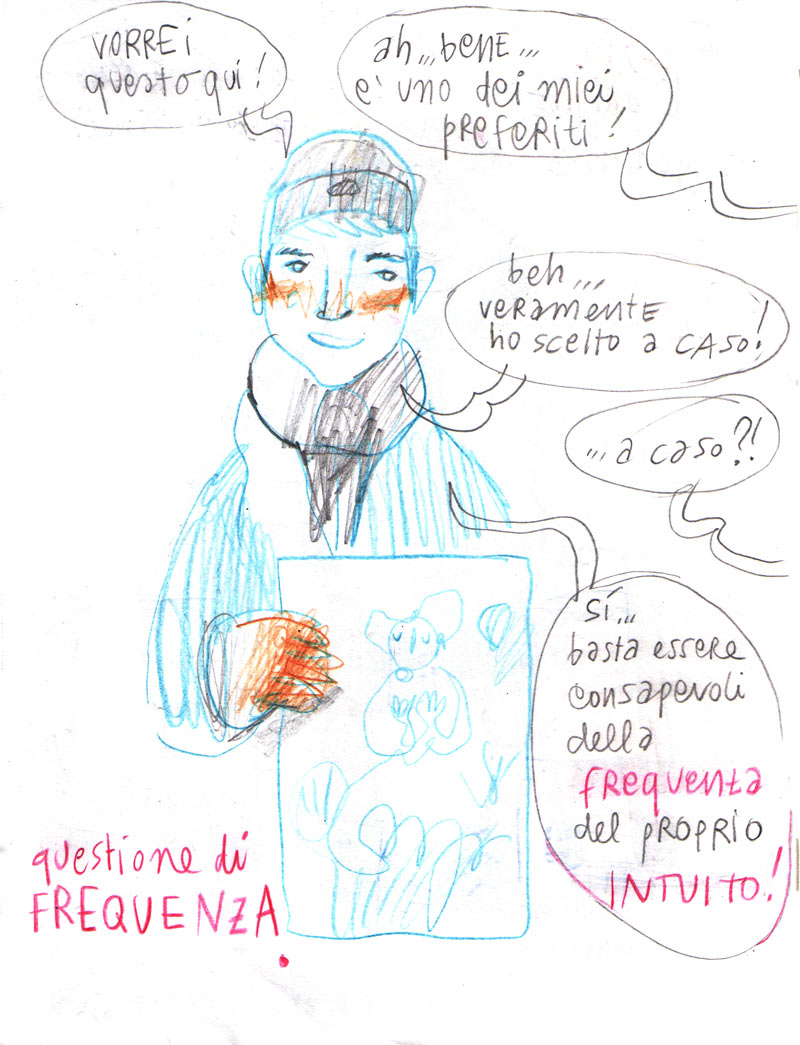 VORREi
questo qui!
ah... bENE...
e' uno dei miei
preferiti!
beh...
VERAMENTE
ho scelto a CASO!
... a caso?!
Sí...
basta essere
consapevoli
della
frequenza
del PROPRIO
INTUITO!
questione di
FREQUENZA.